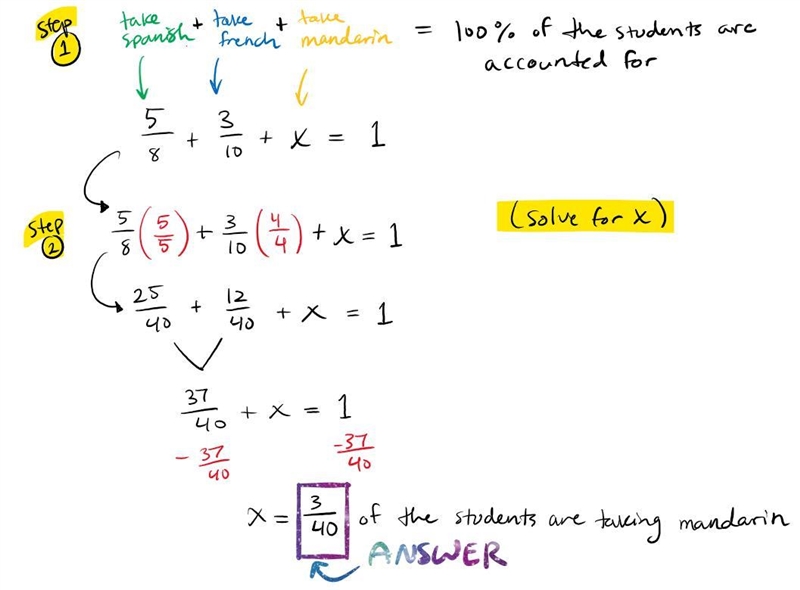 Step 1
take spanish + take french + take mandarin = 100% of the students are accounted for
5/8 + 3/10 + x = 1
Step 2
5/8 (5/5) + 3/10 (4/4) + x = 1
(solve for x)
25/40 + 12/40 + x = 1
37/40 + x = 1
- 37/40 -37/40
x = 3/40 of the students are taking mandarin
ANSWER